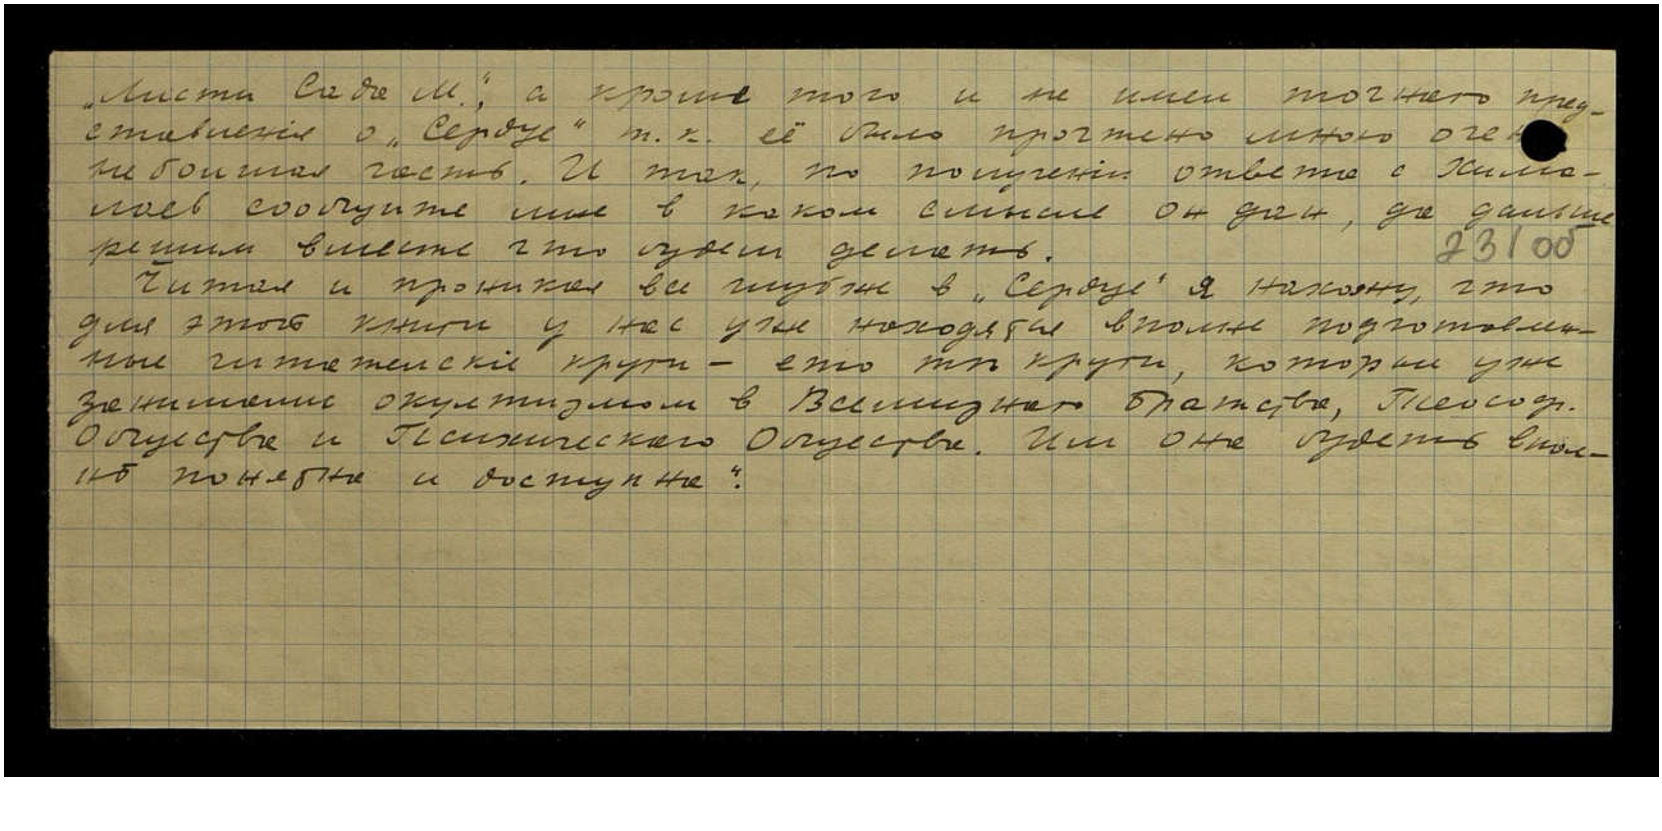 „Листи Сада М.“, а кроме того и не имел точнаго пред-
ставленія о „Сердце“ т. к. её было прочтено мною очень
небольшая часть. И так, по полученіи ответа с Хима-
лаев сообщите мне в каком смысле он дан, да дальше
решим вместе что будем делать.
23/об
Читая и проникая все глубже в „Сердце“ я нахожу, что
для этой книги у нас уже находятся вполне подготовлен-
ные читательскіе круги – ето тѣ круги, которые уже
занимались окултизмом в Всемирнаго Братства, Теософ.
Общества и Психическаго Общества. Им она будетъ впол-
нѣ понятна и доступна“.